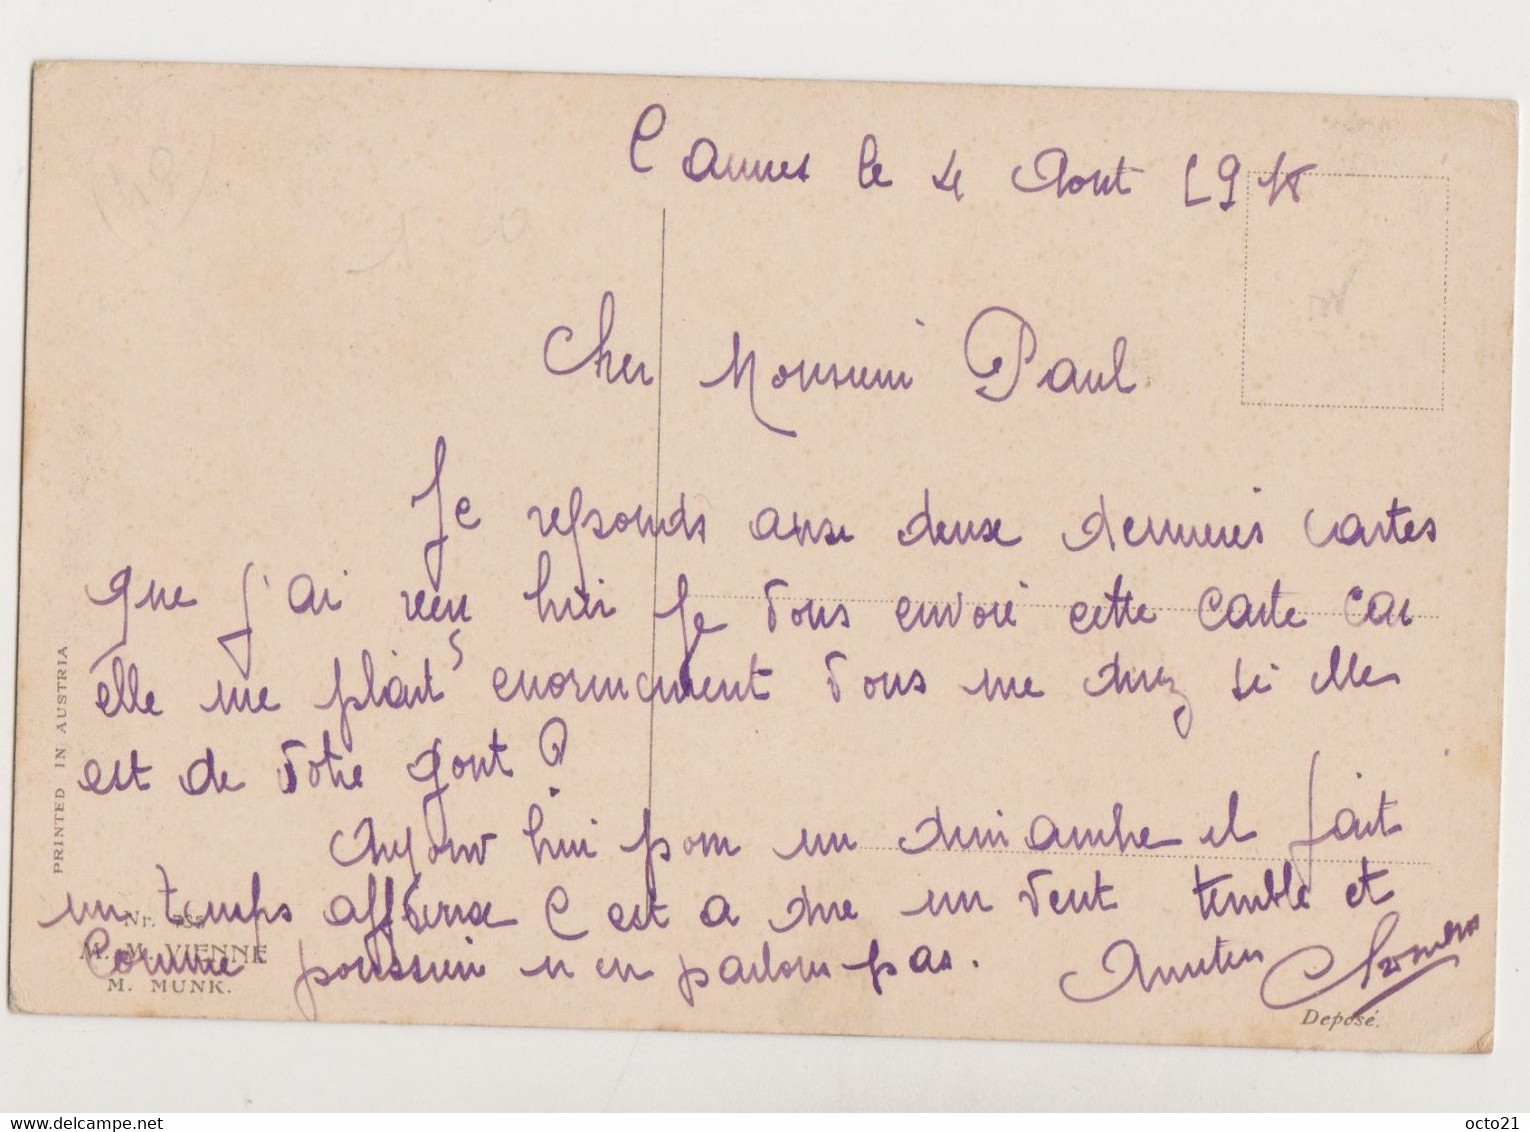 Cannes le 4 Aout 1918
Cher Monsieur Paul
Je responds aux deux dernieres cartes
que j'ai reçu hier Je vous envoie cette carte car
elle me plait enormement vous me direz si elle
est de votre gout ?
Aujour hui pour un dimanche il fait
un temps affreux c est a dire un vent terrible et
Comme poussiere n en parlons pas. Amities
PRINTED IN AUSTRIA
Nr.
M. M. VIENNE
M. MUNK.
Deposé.
octo21
delcampe.net